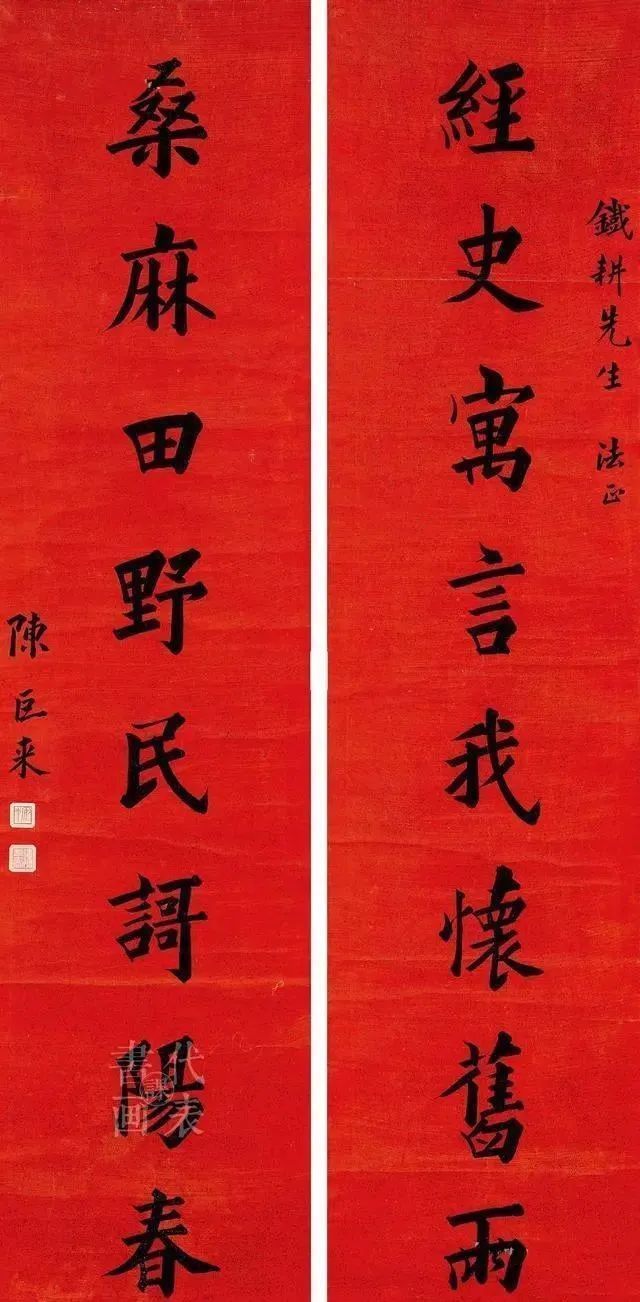 鐵耕先生 法正
經史寓言我懷舊雨
桑麻田野民謌陽春
陳巨来
書画
代表
課